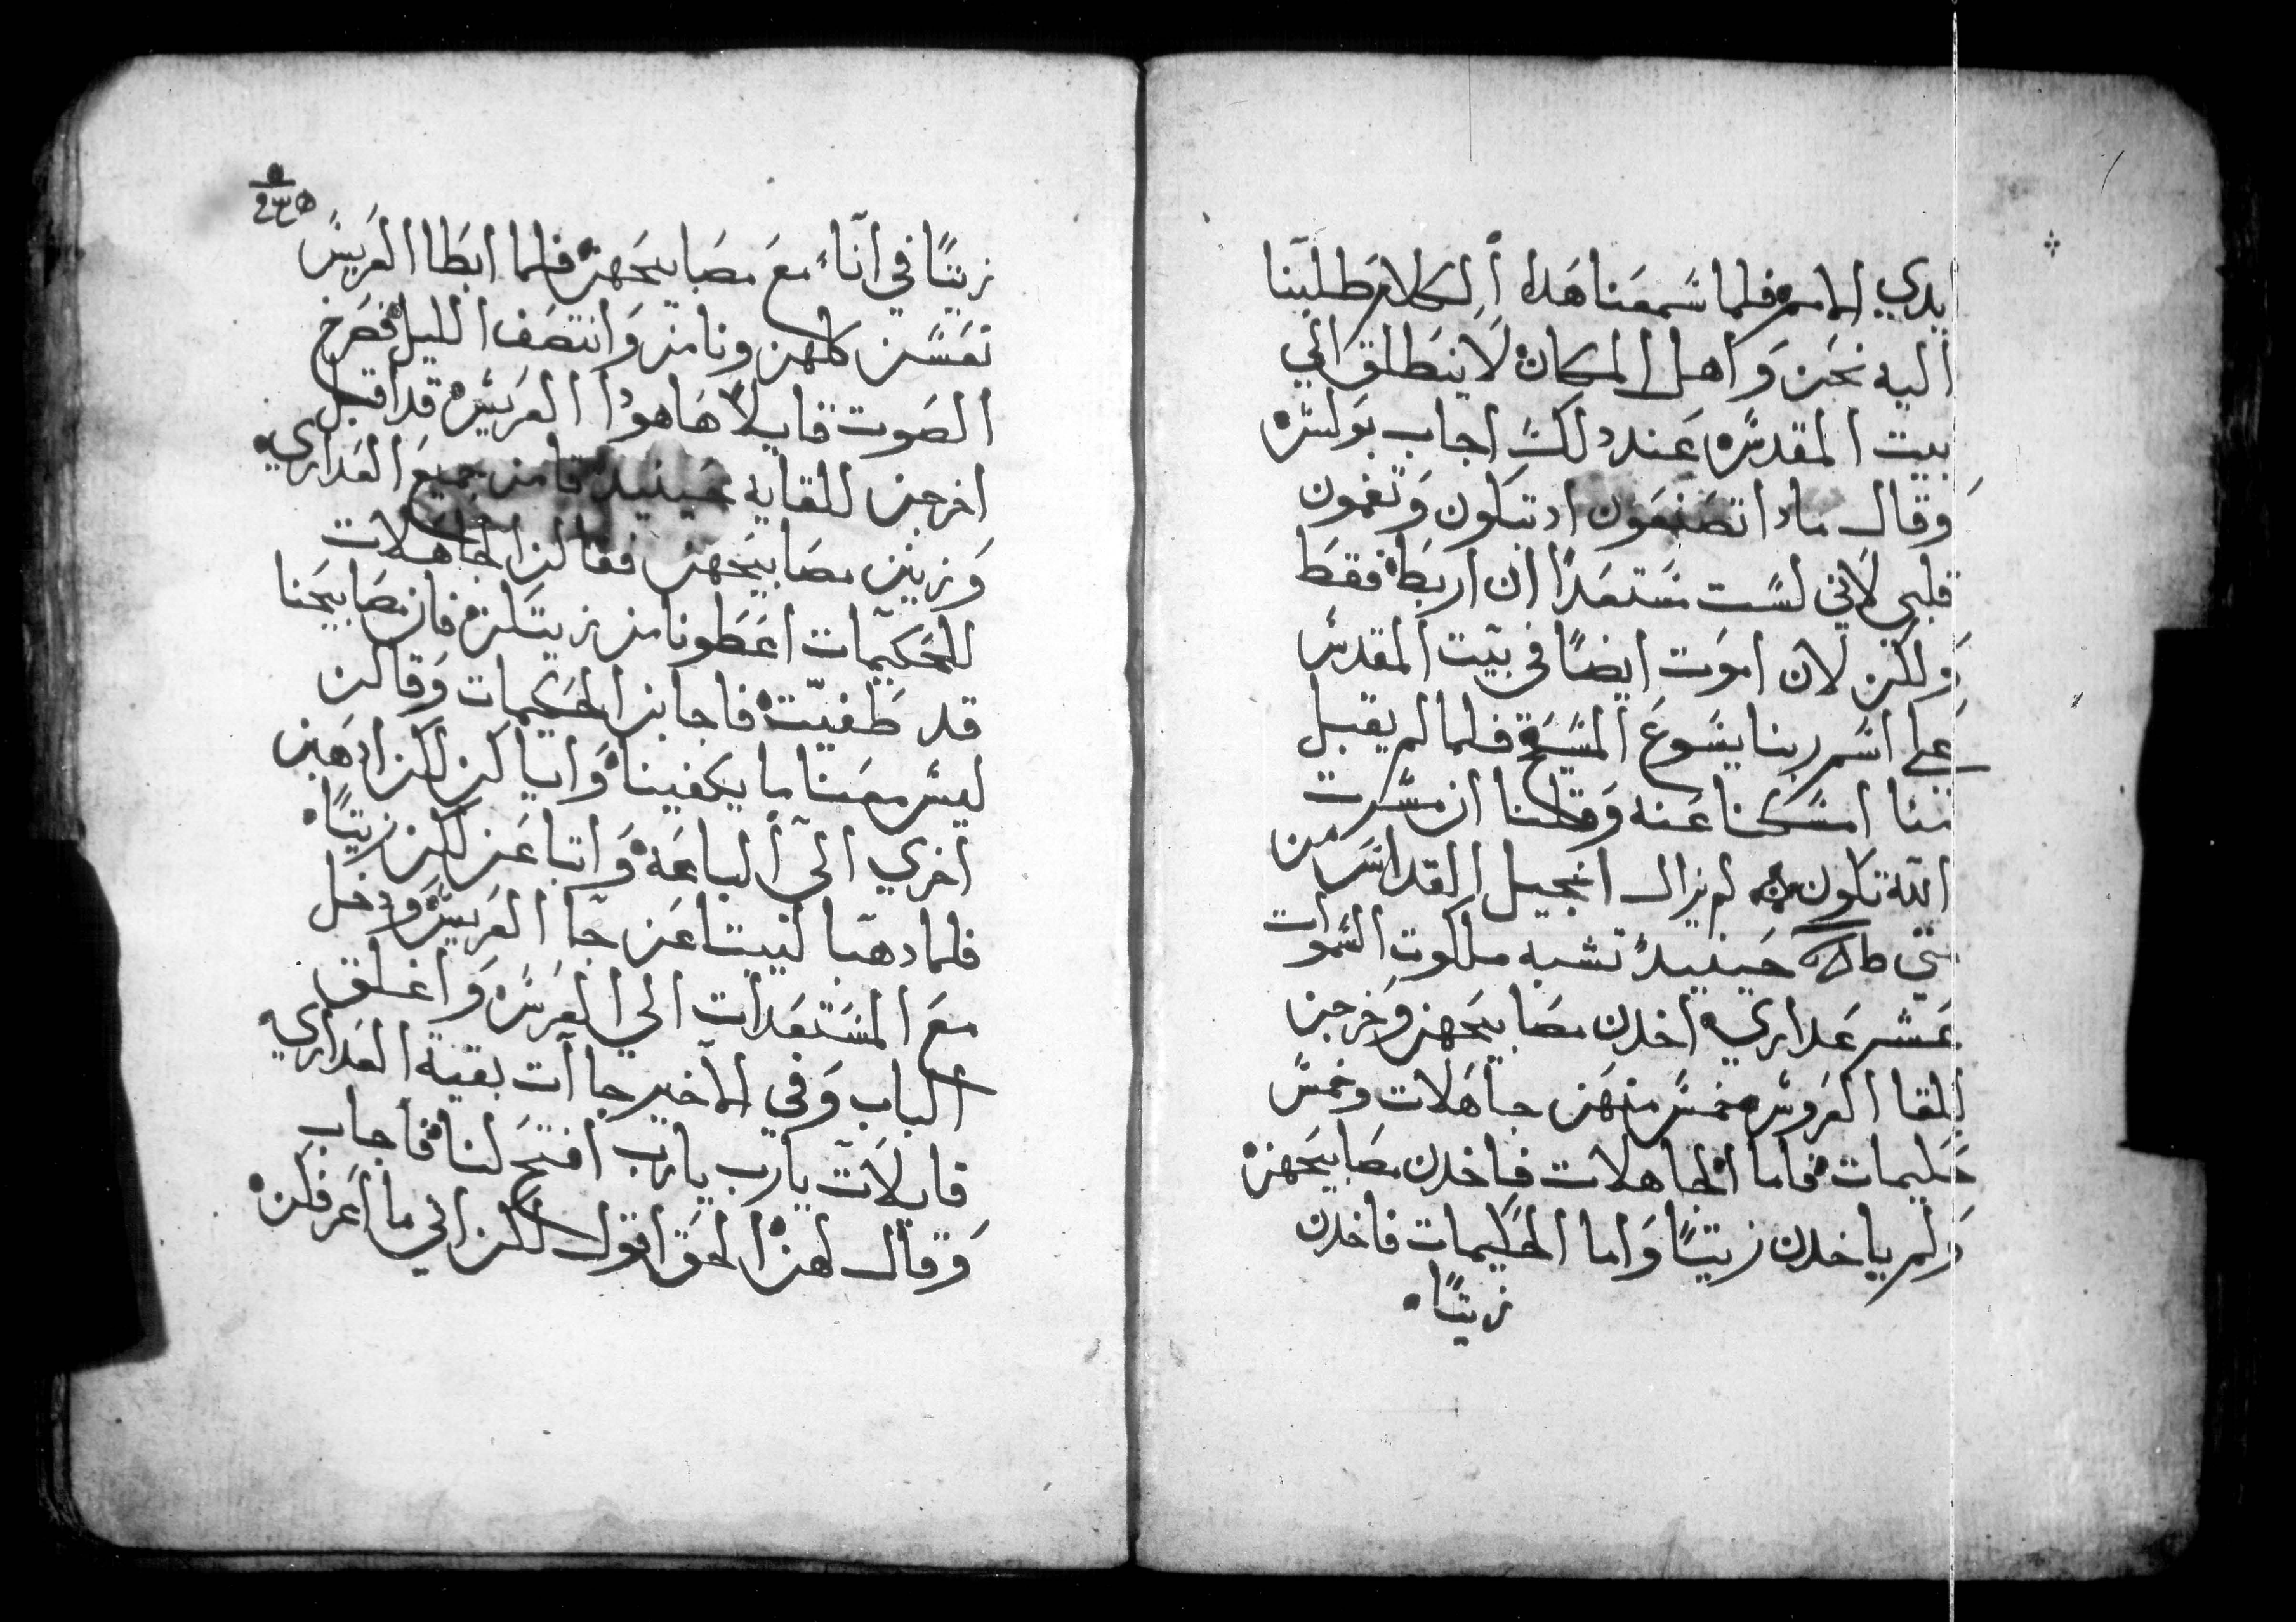 ايدي الامم فلما سمعنا هدا الكلام طلبنا
اليه نحن واهل المكان لا ينطلق الي
بيت المقدس عند دلك اجاب بولس
وقال مادا تصنعون اد تبكون وتغمون
قلبي لاني لست مستعدًا ان اربط فقط
ولكن لان اموت ايضًا في بيت المقدس
علي اسم ربنا يسوع المسيح فلما لم يقبل
مننا امسكنا عنه وقلنا ان مسرت
الله تكون لم يزال انجيل القداس من
متي حينيدً تشبه ملكوت السموات
عشر عداري اخدن مصابيحهن وخرجن
للقا العروس خمس منهن جاهلات وخمس
حكيمات فاما الجاهلات فاخدن مصابيحهن
ولم ياخدن زيتًا واما الحكيمات فاخدن
زيتًا
زيتًا في آناء مع مصابيحهن فلما ابطا العريس
نعسن كلهن ونامن وانتصف الليل فصرخ
الصوت قايلا هاهودا العريس قد اقبل
اخرجن للقايه حينيد قامن جميع العداري
وزينن مصابيحهن فقالن الجاهلات
للحكيمات اعطونا من زيتكن فان مصابيحنا
قد طفيت فاجابن الحكيمات وقالن
ليس معنا ما يكفينا واياكن لكن ادهبن
احري الي الباعة وابتاعن لكن زيتًا
فلما دهبا ليبتاعن جآ العريس ودخل
مع المستعدات الي العرس واغلق
الباب وفي الاخير جاآت بقية العداري
قايلات يارب يارب افتح لنا فاجاب
وقال لهن الحق اقول لكن اني ما اعرفكن